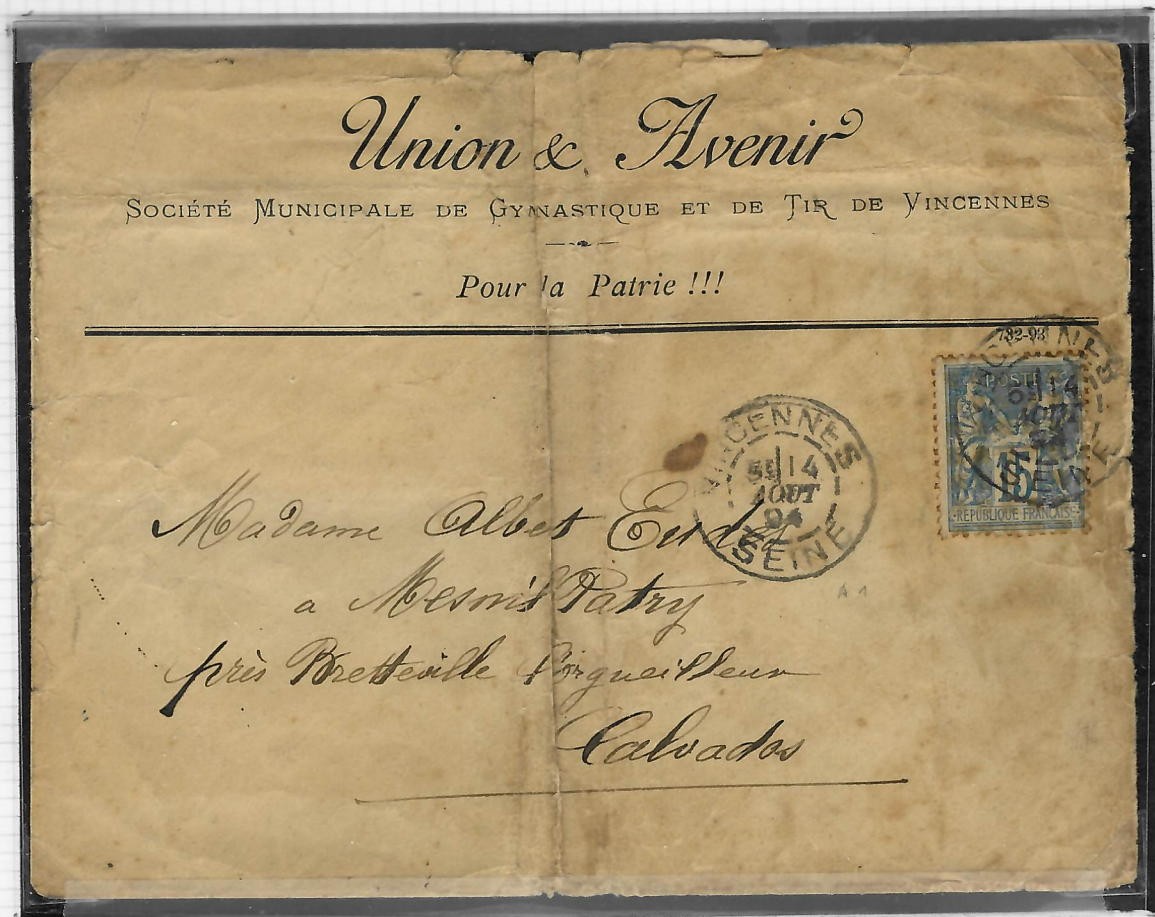 Union & Avenir
Société Municipale de Gymnastique et de Tir de Vincennes
Pour la Patrie !!!
782-93
POSTE
15
RÉPUBLIQUE FRANÇAISE
VINCENNES
14
AOUT
94
SEINE
Madame Albert
a Mesnil Patry
près Bretteville l'Orgueilleuse
Calvados
A1